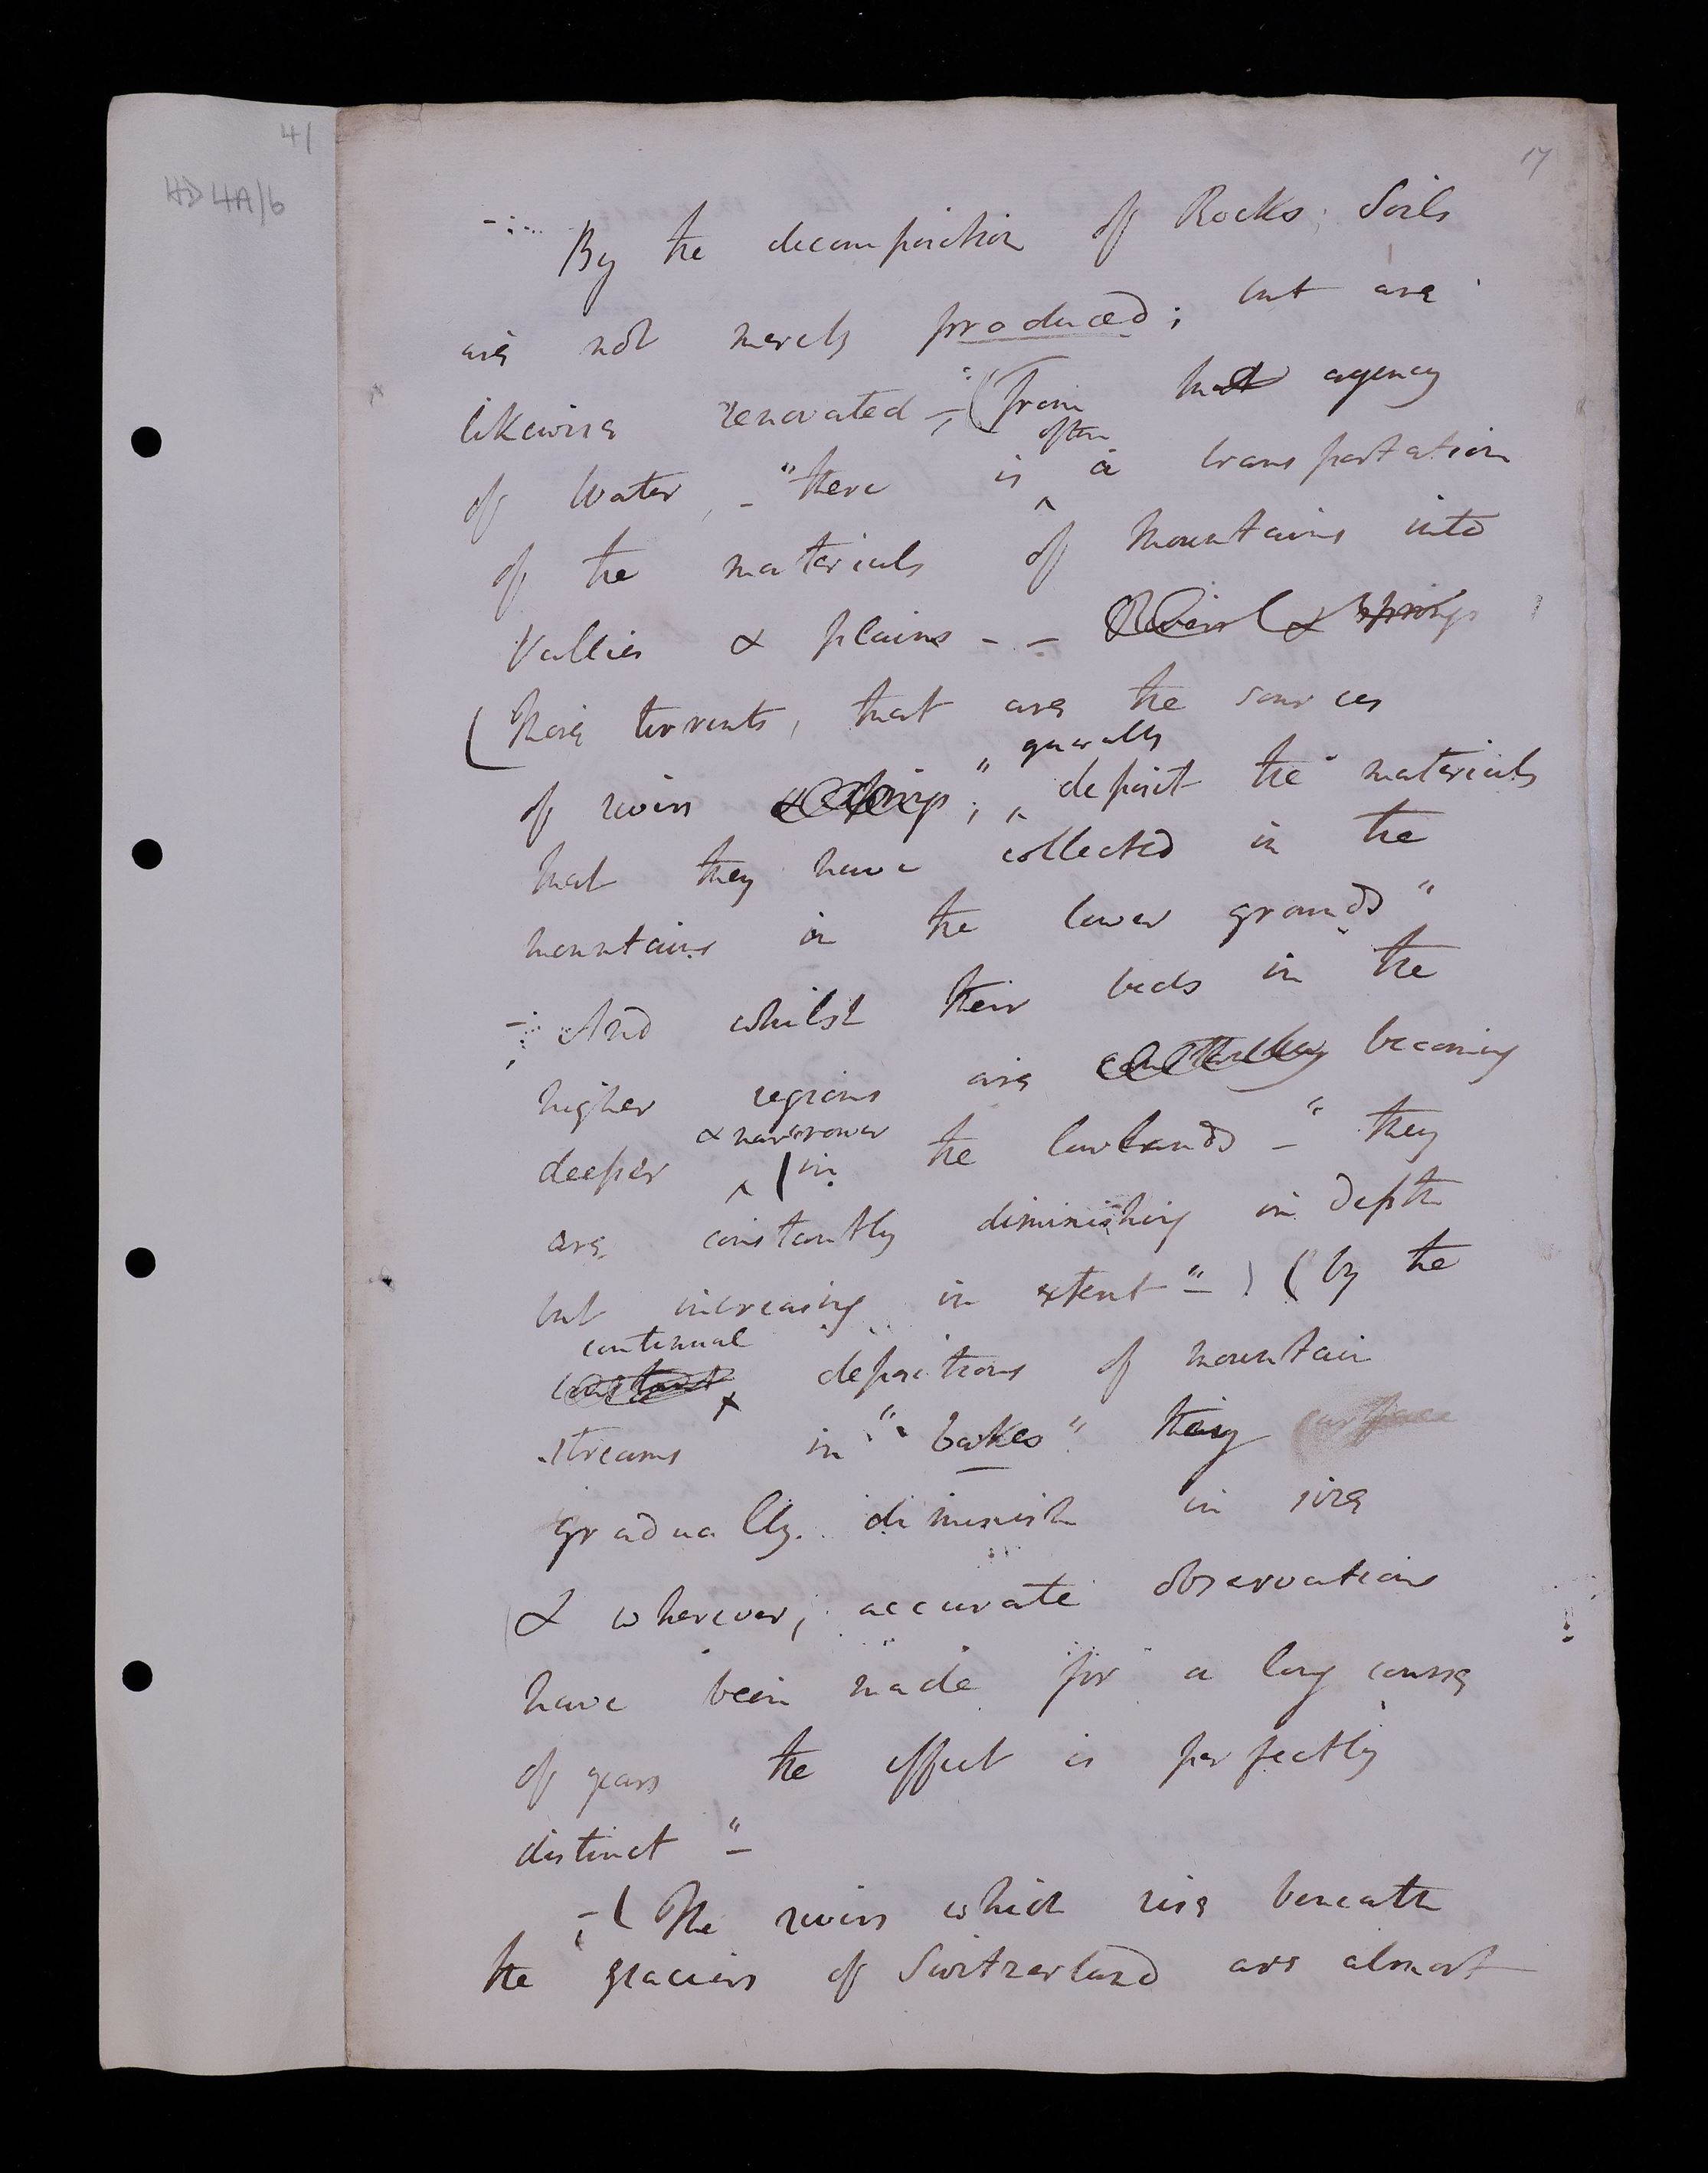 41
HD4A/6
17
-:- By the decomposition of Rocks; Soils
are not merely produced; but are
likewise renovated -; (From that agency
of Water, - "there is often a transportation
of the materials of Mountains into
Vallies & plains - - Rivers & Springs
(Those torrents, that are the sources
of rivers & springs; " generally deposit the materials
that they have collected in the
mountains in the lower grounds"
-: And whilst their beds in the
higher regions are becoming
deeper & narrower / in the lowlands - " they
are constantly diminishing in depth
but increasing in extent" - ) ( by the
continual
constant depositions of mountain
streams in " Lakes" they surface
gradually diminish in size
& wherever; accurate observations
have been made for a long course
of years the effect is perfectly
distinct " -
-; ( The rivers which rise beneath
the glaciers of Switzerland are almost